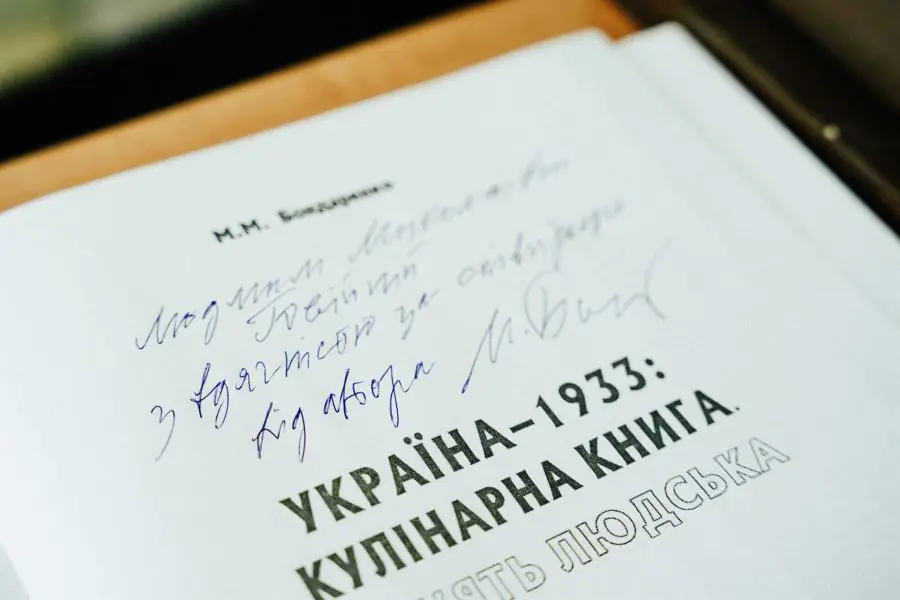 М.М. Бондаренко
Людмилі Миколаївні
з вдячністю за співпрацю
від автора М. Бон
УКРАЇНА–1933:
КУЛІНАРНА КНИГА.
ЛЮДСЬКА